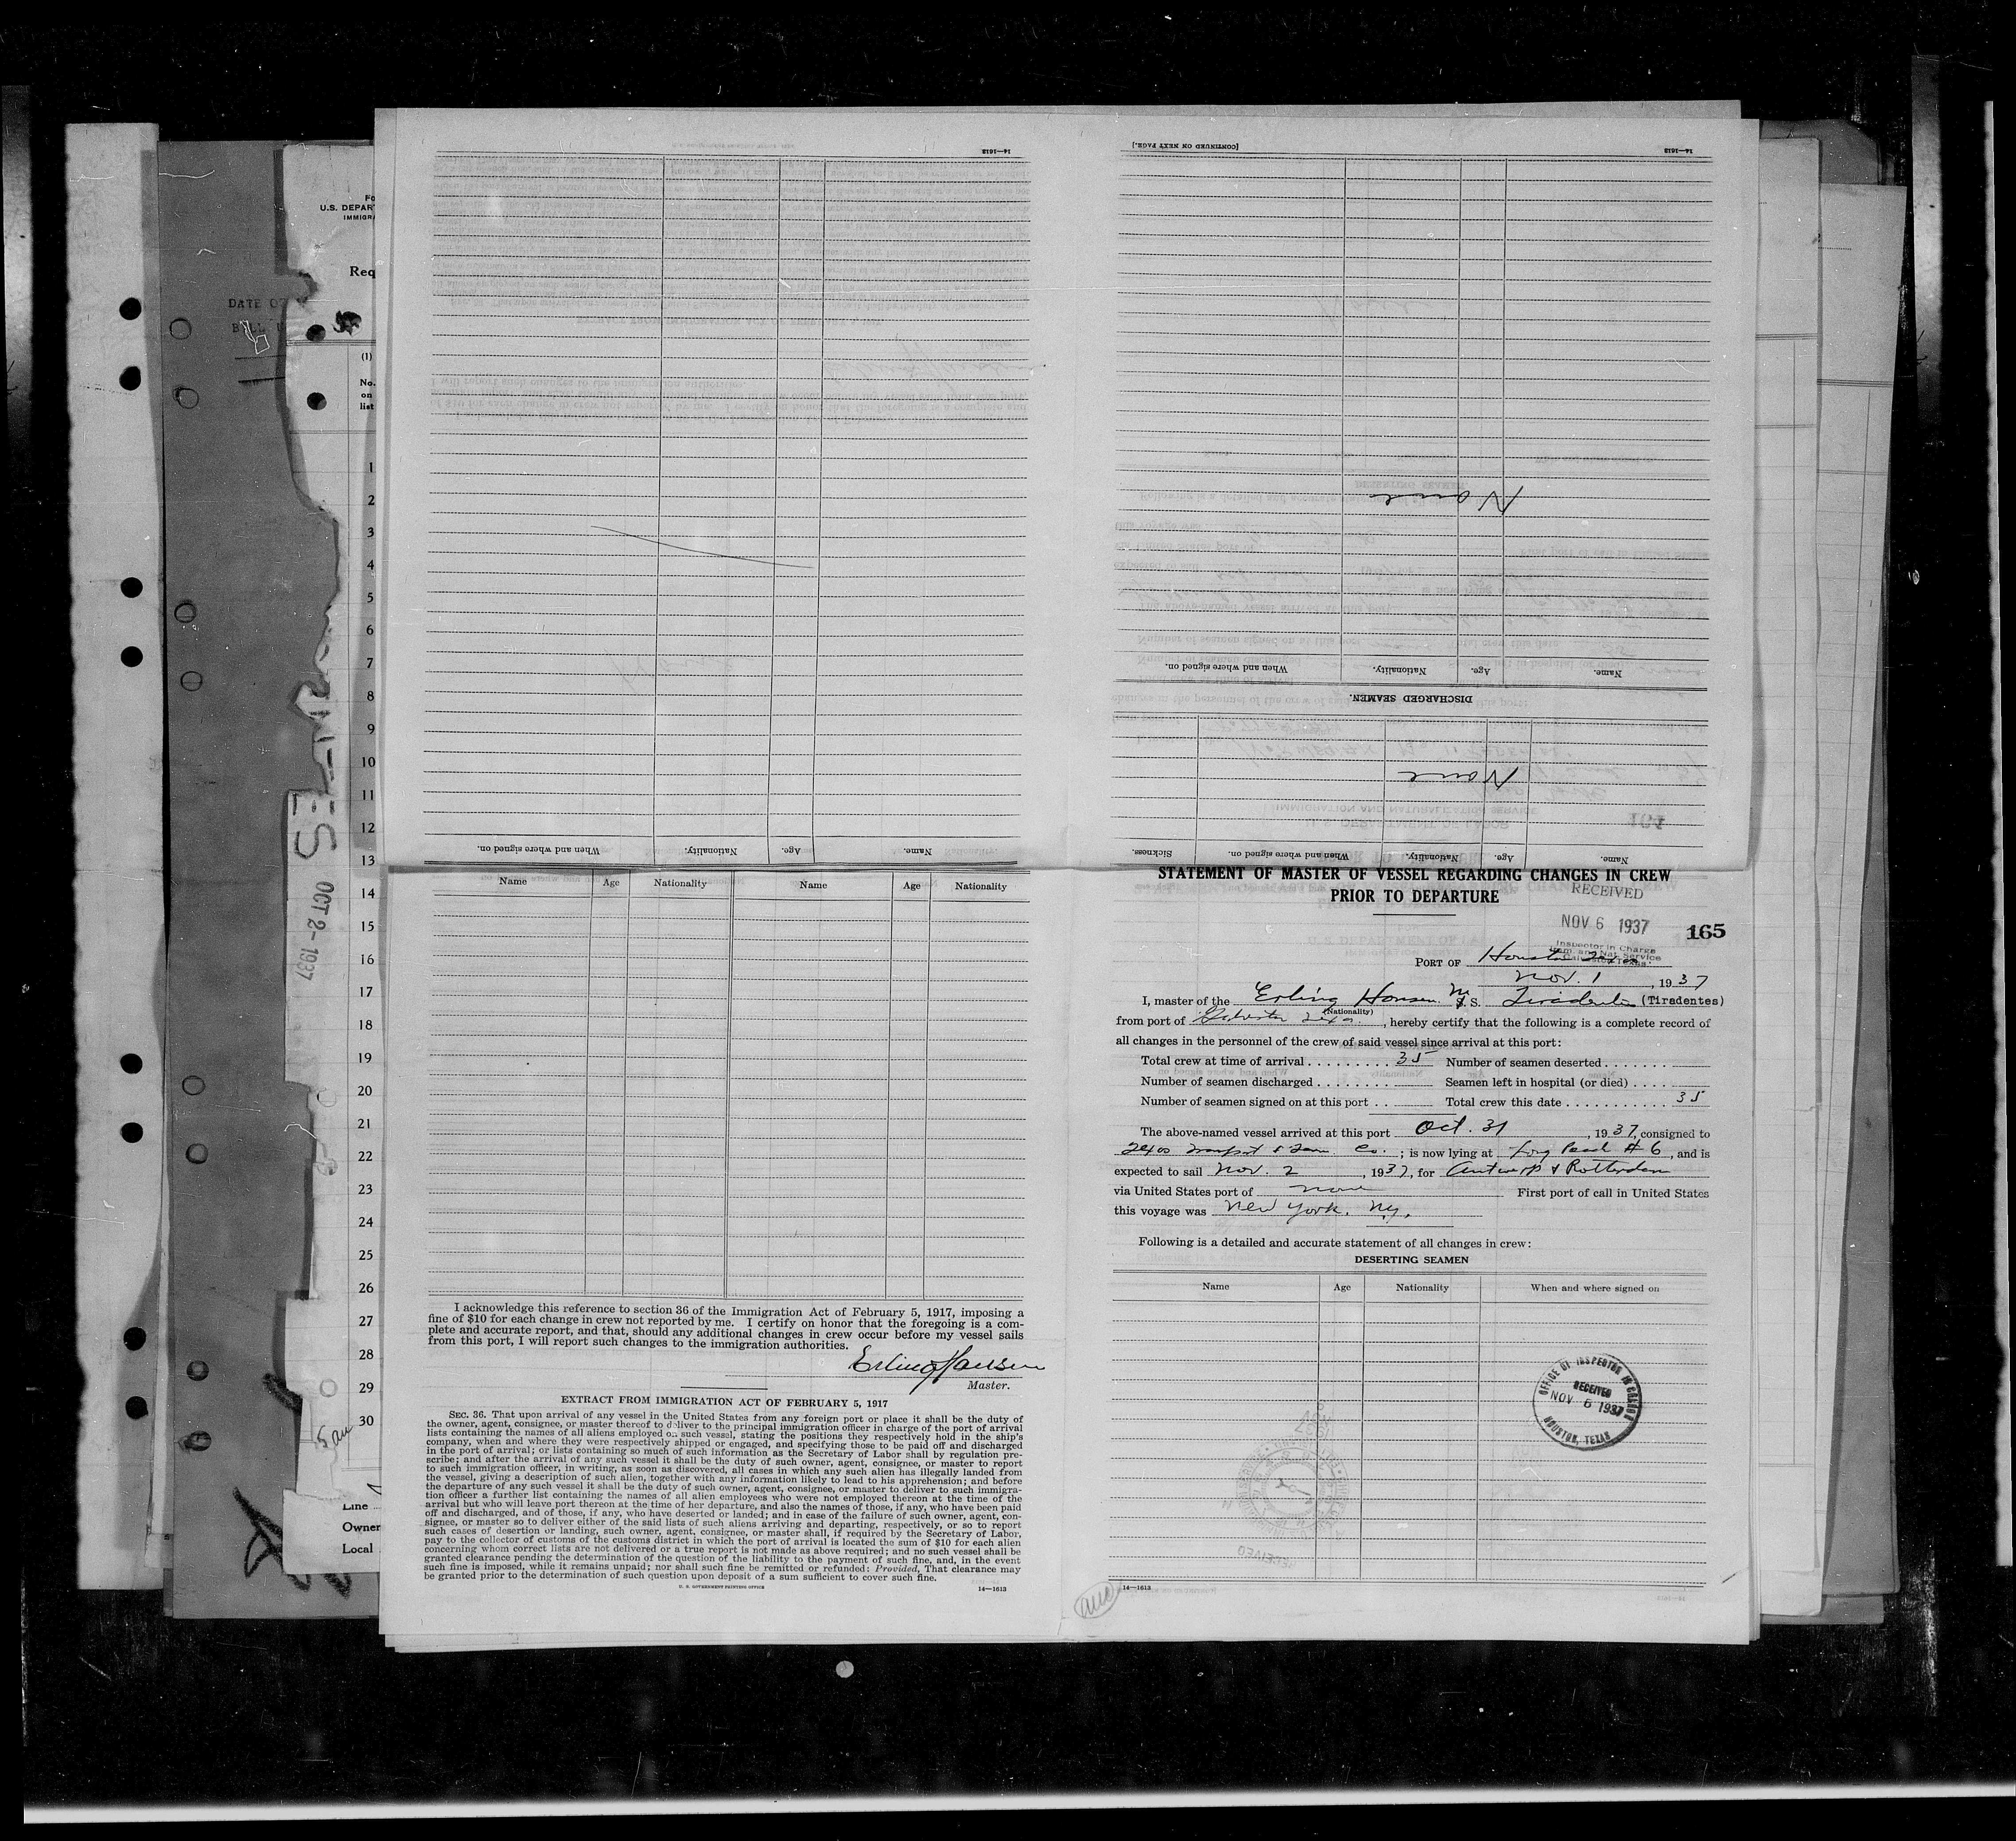 Fo
U.S. DEPAR
IMMIGRA
Req
DATE OF
(1)
No.
on
list
1
2
3
4
5
6
7
8
9
10
11
12
13
14
15
16
17
18
19
20
21
22
23
24
25
26
27
28
29
30
OCT 2- 1937
Line
Owner
Local
14—1612
Name. Age. Nationality. When and where signed on.
[CONTINUED ON NEXT PAGE.]
14—1612
None
Name. Age. Nationality. When and where signed on.
DISCHARGED SEAMEN.
None
Name. Age. Nationality. When and where signed on. Sickness.
Name Age Nationality Name Age Nationality
I acknowledge this reference to section 36 of the Immigration Act of February 5, 1917, imposing a
fine of $10 for each change in crew not reported by me. I certify on honor that the foregoing is a com-
plete and accurate report, and that, should any additional changes in crew occur before my vessel sails
from this port, I will report such changes to the immigration authorities.
Erling Hansen
Master.
EXTRACT FROM IMMIGRATION ACT OF FEBRUARY 5, 1917
SEC. 36. That upon arrival of any vessel in the United States from any foreign port or place it shall be the duty of
the owner, agent, consignee, or master thereof to deliver to the principal immigration officer in charge of the port of arrival
lists containing the names of all aliens employed on such vessel, stating the positions they respectively hold in the ship's
company, when and where they were respectively shipped or engaged, and specifying those to be paid off and discharged
in the port of arrival; or lists containing so much of such information as the Secretary of Labor shall by regulation pre-
scribe; and after the arrival of any such vessel it shall be the duty of such owner, agent, consignee, or master to report
to such immigration officer, in writing, as soon as discovered, all cases in which any such alien has illegally landed from
the vessel, giving a description of such alien, together with any information likely to lead to his apprehension; and before
the departure of any such vessel it shall be the duty of such owner, agent, consignee, or master to deliver to such immigra-
tion officer a further list containing the names of all alien employees who were not employed thereon at the time of the
arrival but who will leave port thereon at the time of her departure, and also the names of those, if any, who have been paid
off and discharged, and of those, if any, who have deserted or landed; and in case of the failure of such owner, agent, con-
signee, or master so to deliver either of the said lists of such aliens arriving and departing, respectively, or so to report
such cases of desertion or landing, such owner, agent, consignee, or master shall, if required by the Secretary of Labor,
pay to the collector of customs of the customs district in which the port of arrival is located the sum of $10 for each alien
concerning whom correct lists are not delivered or a true report is not made as above required; and no such vessel shall be
granted clearance pending the determination of the question of the liability to the payment of such fine, and, in the event
such fine is imposed, while it remains unpaid; nor shall such fine be remitted or refunded: Provided, That clearance may
be granted prior to the determination of such question upon deposit of a sum sufficient to cover such fine.
U. S. GOVERNMENT PRINTING OFFICE 14—1613
STATEMENT OF MASTER OF VESSEL REGARDING CHANGES IN CREW
PRIOR TO DEPARTURE
RECEIVED
NOV 6 1937
Inspector in Charge
Imm. and Nat. Service
Galveston, Texas.
165
PORT OF Houston Texas
Nov. 1, 1937
I, master of the Erling Hansen M. S. Tiradentes (Tiradentes)
(Nationality)
from port of Galveston Texas, hereby certify that the following is a complete record of
all changes in the personnel of the crew of said vessel since arrival at this port:
Total crew at time of arrival 35 Number of seamen deserted
Number of seamen discharged Seamen left in hospital (or died)
Number of seamen signed on at this port Total crew this date 35
The above-named vessel arrived at this port Oct. 31, 1937, consigned to
Texas Transport & Term. Co.; is now lying at Long Reach #6, and is
expected to sail Nov. 2, 1937, for Antwerp & Rotterdam
via United States port of none First port of call in United States
this voyage was New York, N.y.
Following is a detailed and accurate statement of all changes in crew:
DESERTING SEAMEN
Name Age Nationality When and where signed on
OFFICE OF INSPECTOR IN CHARGE
RECEIVED
NOV 6 1937
HOUSTON, TEXAS
14—1613